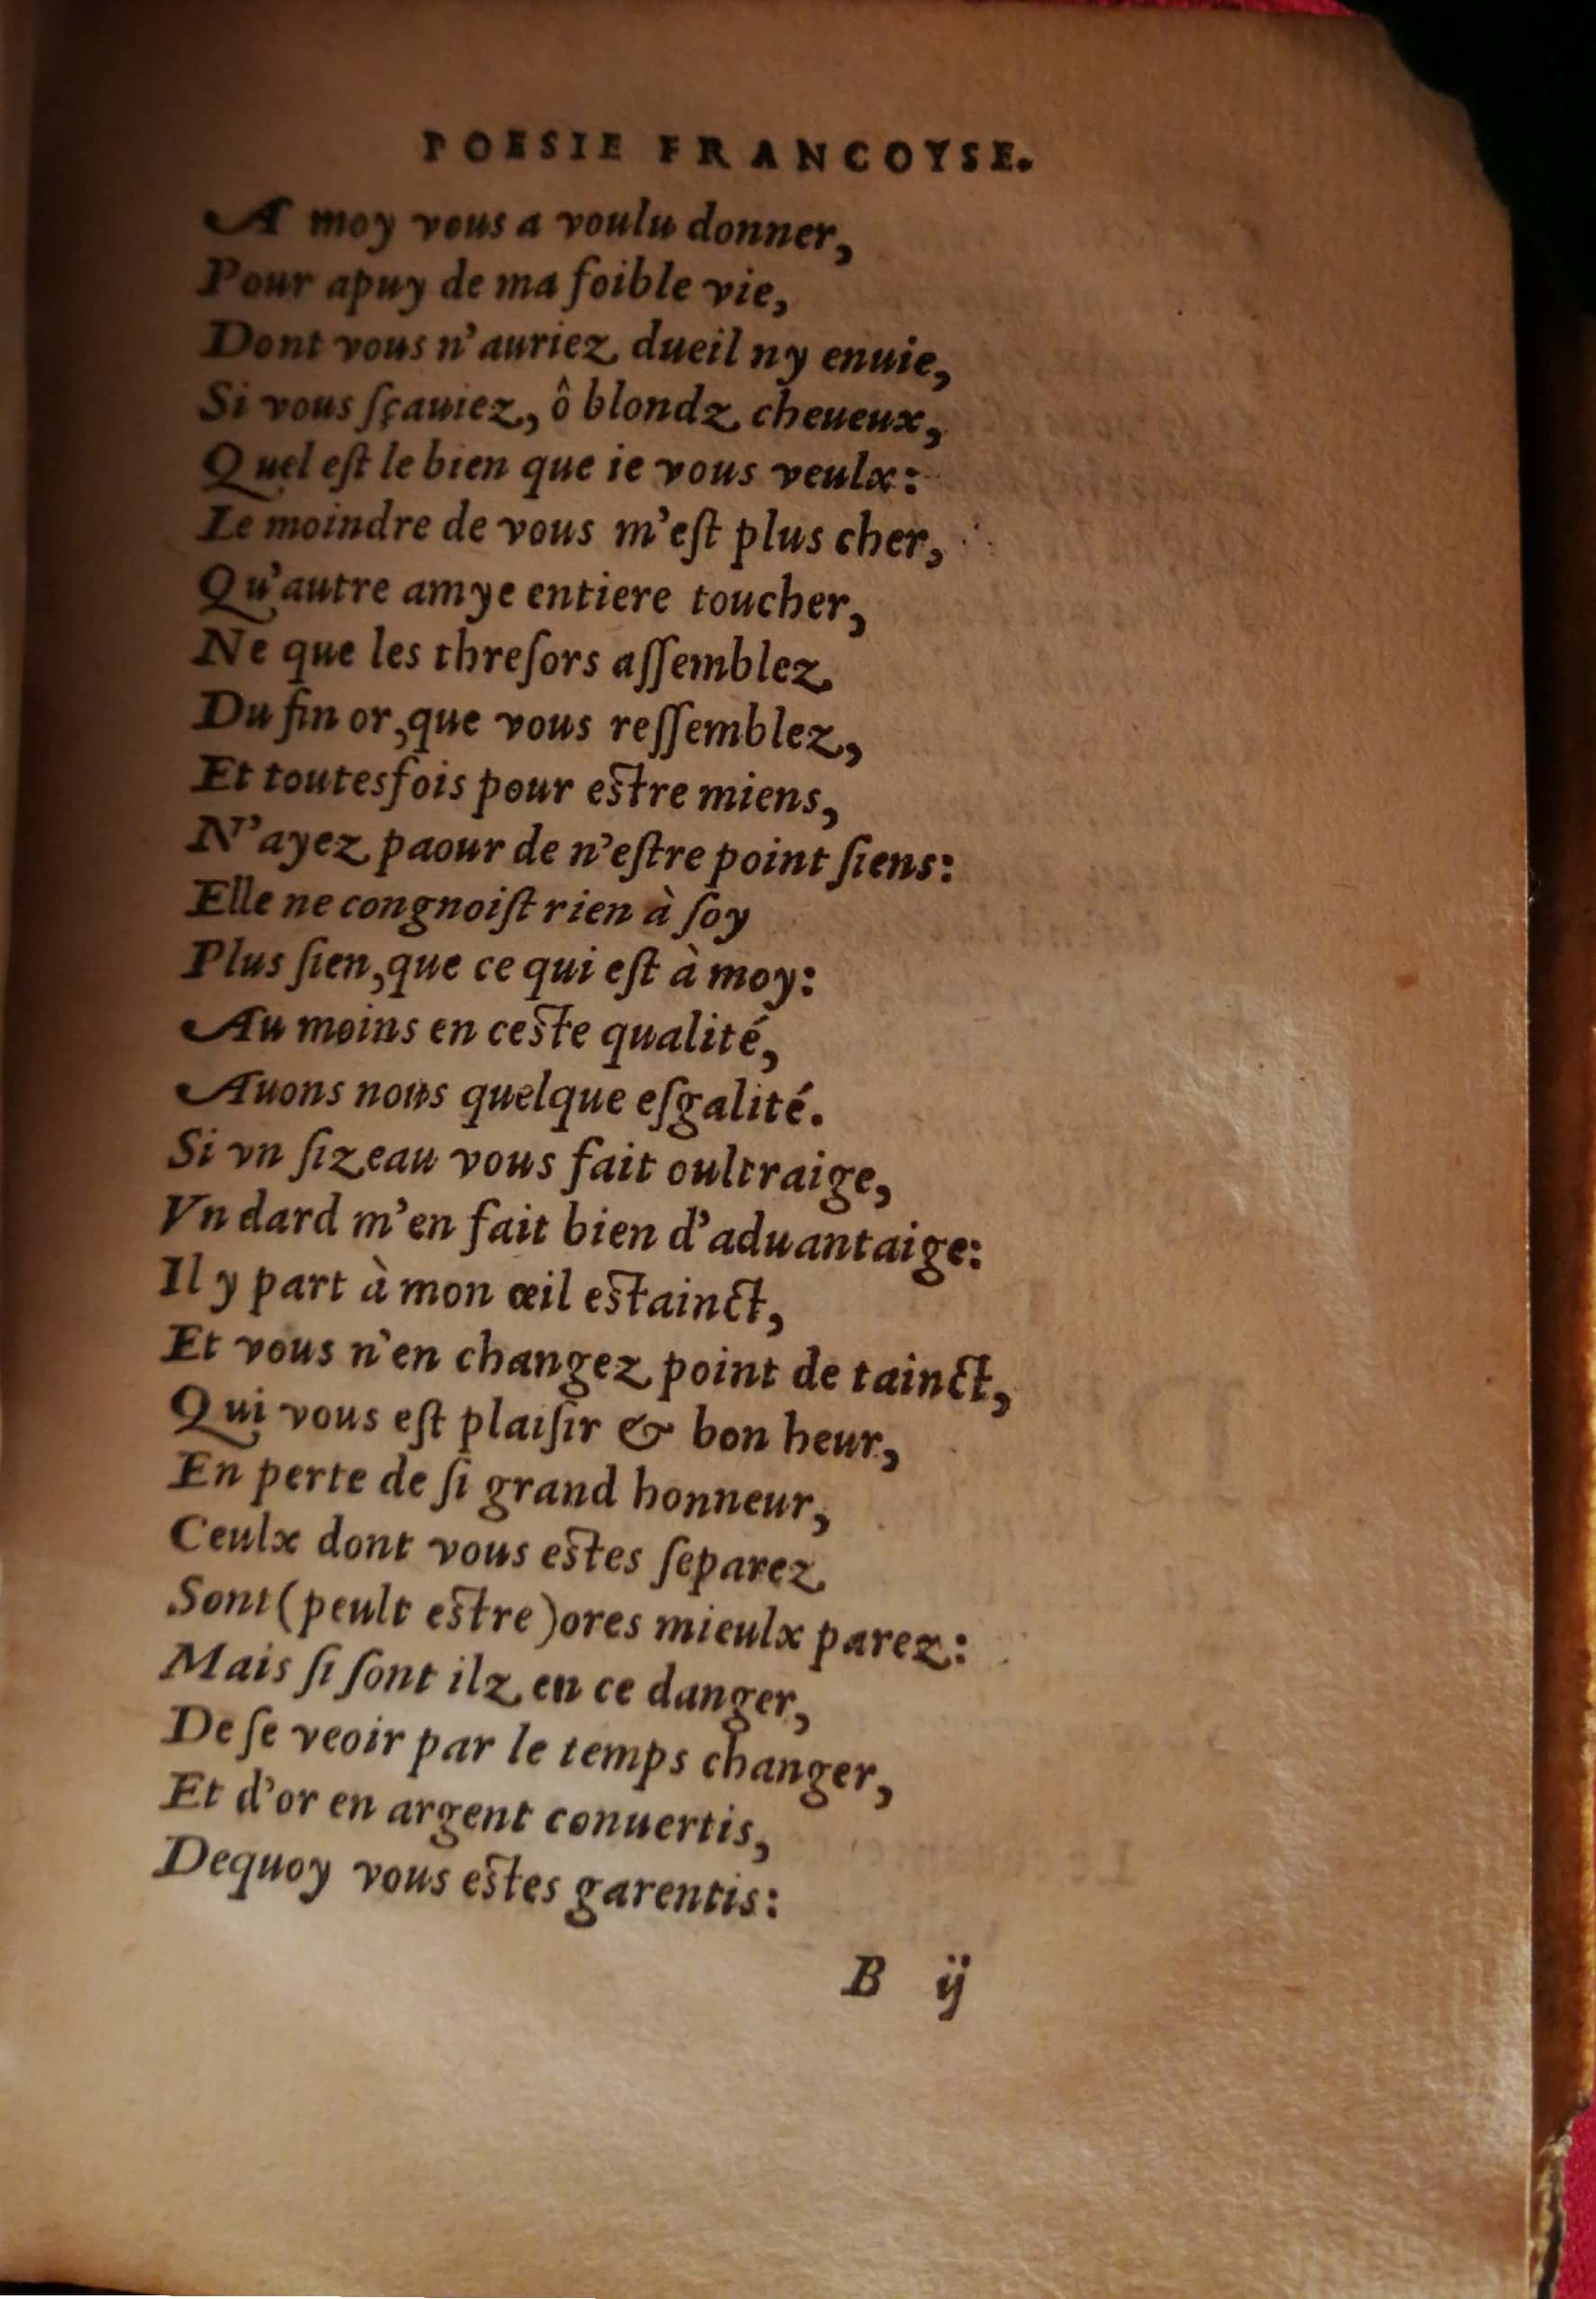 POESIE FRANCOYSE.
A moy vous a voulu donner,
Pour apuy de ma foible vie,
Dont vous n'auriez dueil ny enuie,
Si vous ſçauiez, ô blondz cheueux,
Quel eſt le bien que ie vous veulx:
Le moindre de vous m'eſt plus cher,
Qu'autre amye entiere toucher,
Ne que les threſors aſſemblez
Du fin or, que vous reſſemblez,
Et toutesfois pour eſtre miens,
N'ayez paour de n'eſtre point ſiens:
Elle ne congnoiſt rien à ſoy
Plus ſien, que ce qui eſt à moy:
Au moins en ceſte qualité,
Auons nous quelque eſgalité.
Si vn ſizeau vous fait oultraige,
Vn dard m'en fait bien d'aduantaige:
Il y part à mon œil eſtainct,
Et vous n'en changez point de tainct,
Qui vous eſt plaiſir & bon heur,
En perte de ſi grand honneur,
Ceulx dont vous eſtes ſeparez
Sont (peult eſtre) ores mieulx parez:
Mais ſi ſont ilz en ce danger,
De ſe veoir par le temps changer,
Et d'or en argent conuertis,
Dequoy vous eſtes garentis:
B ij